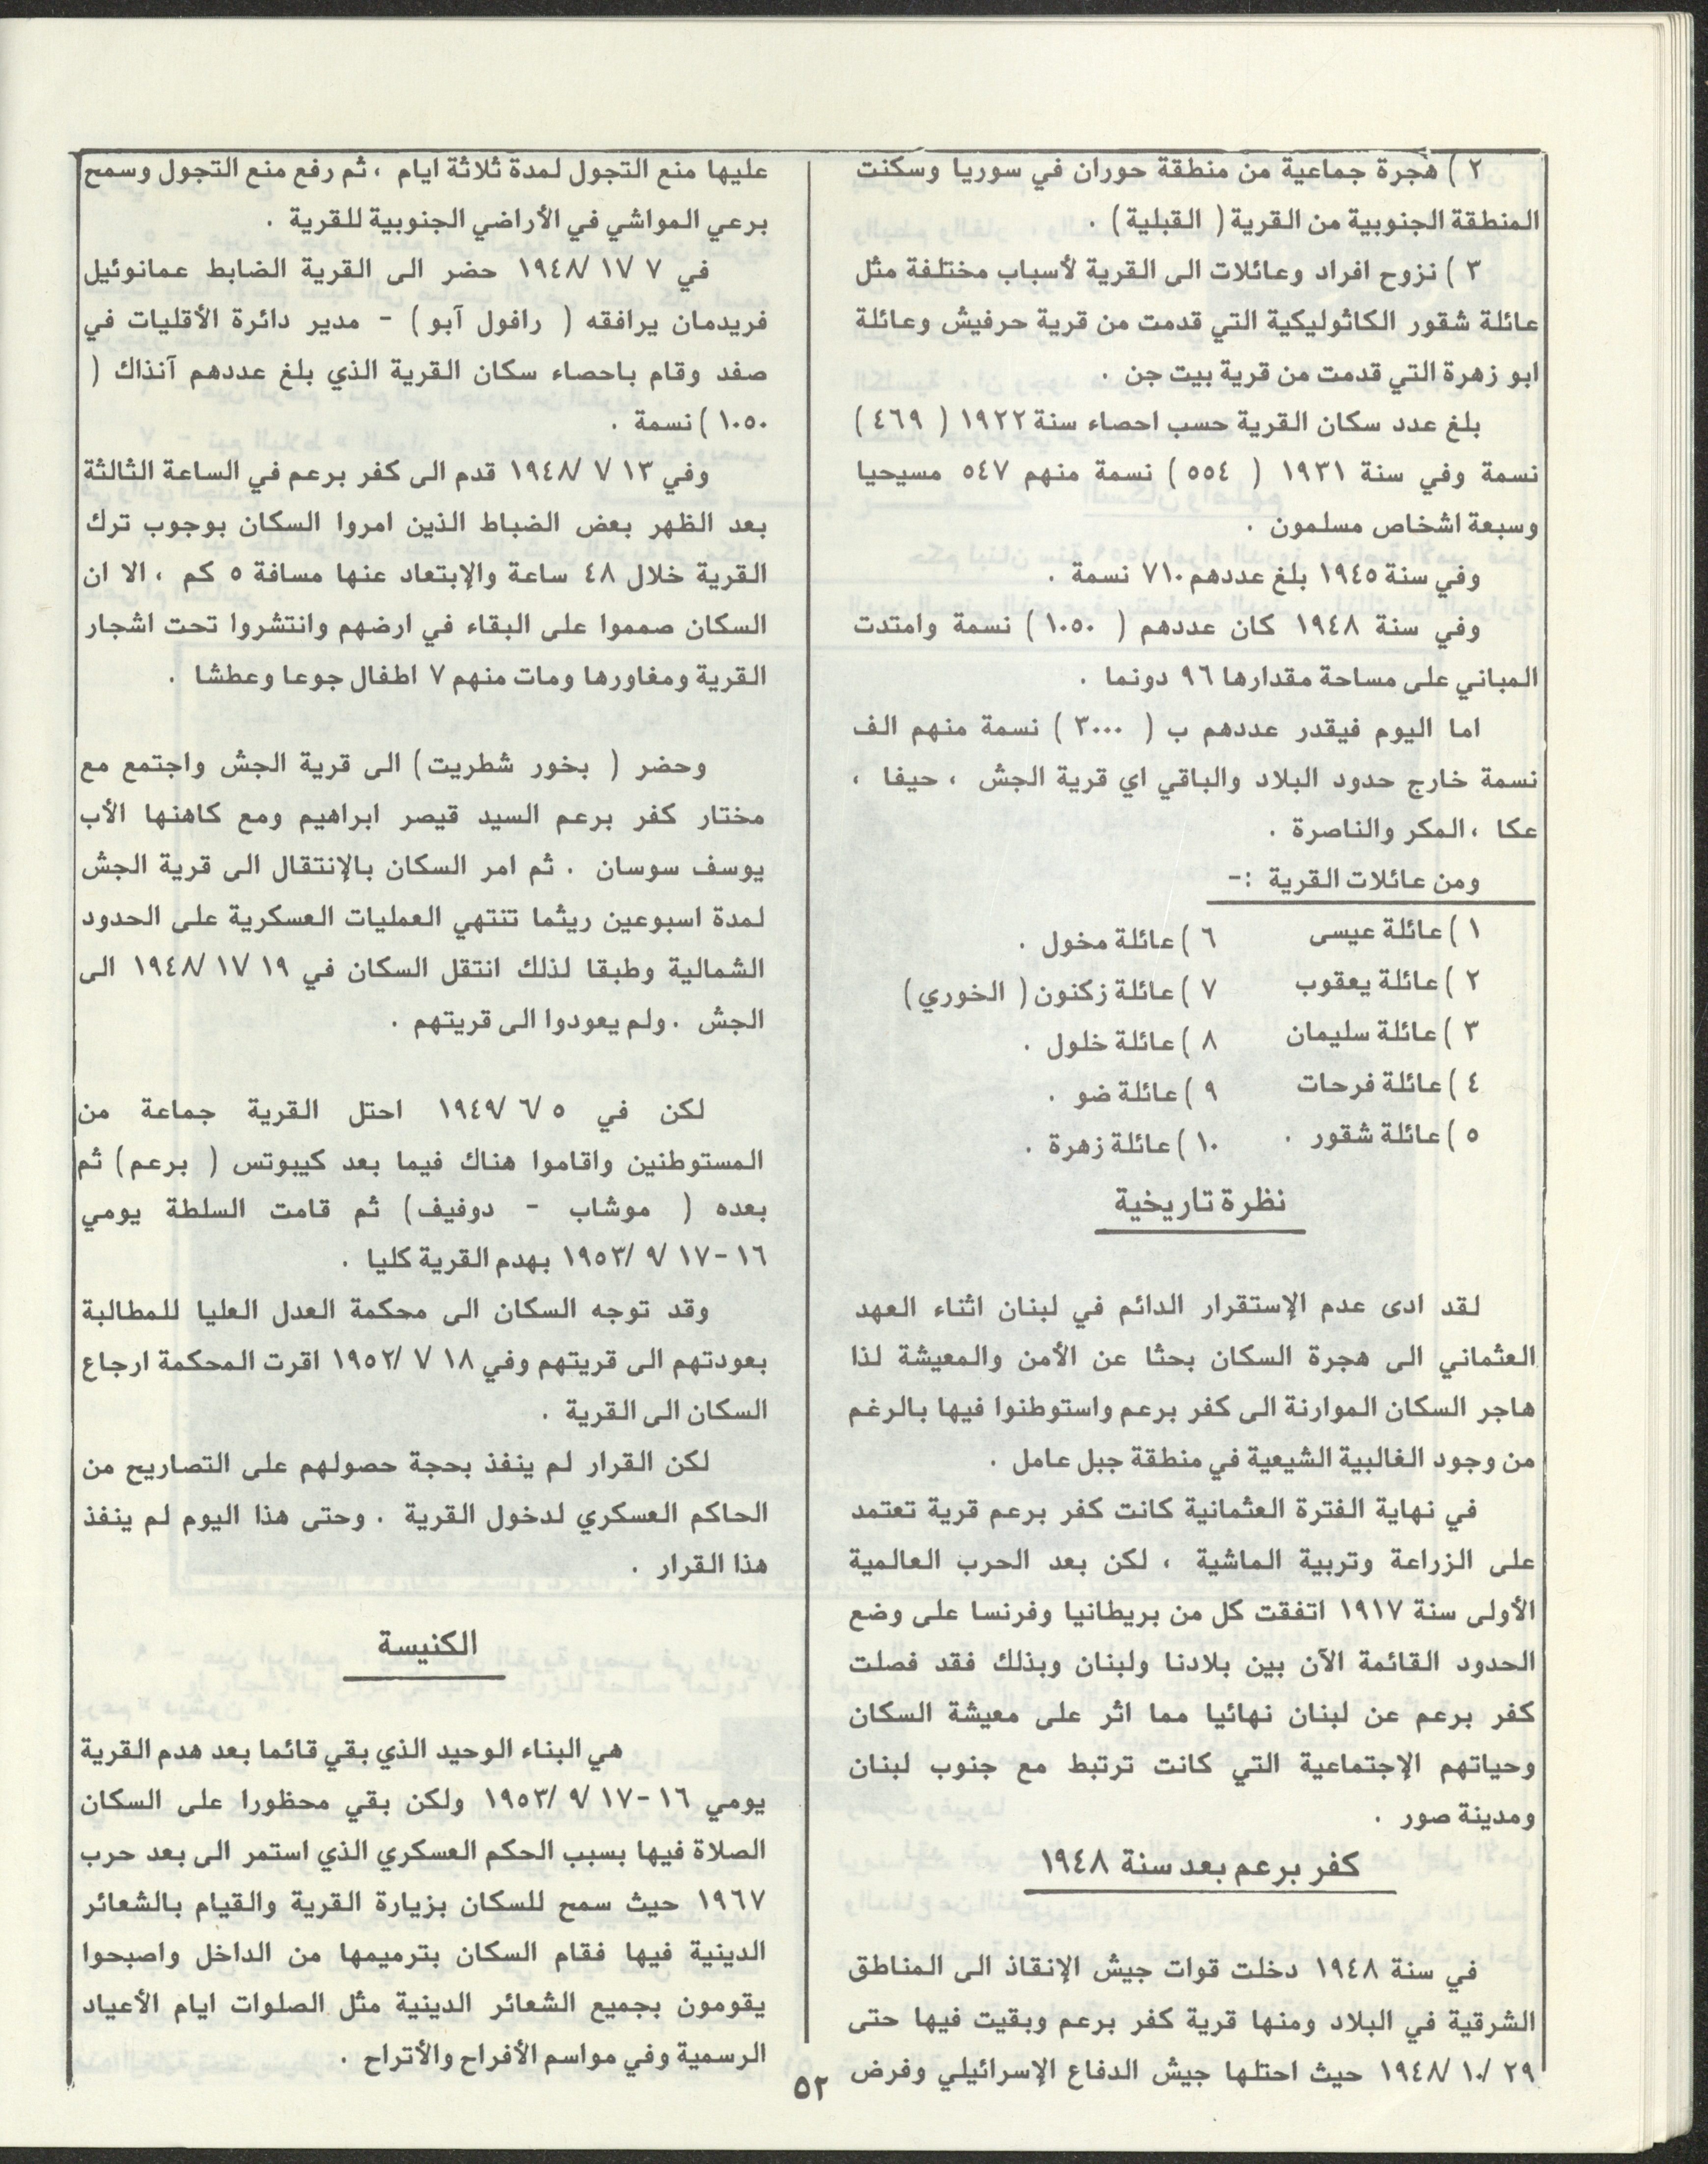 ٢ ) هجرة جماعية من منطقة حوران في سوريا وسكنت
المنطقة الجنوبية من القرية ( القبلية ) .
٣ ) نزوح افراد وعائلات الى القرية لأسباب مختلفة مثل
عائلة شقور الكاثوليكية التي قدمت من قرية حرفيش وعائلة
ابو زهرة التي قدمت من قرية بيت جن .
بلغ عدد سكان القرية حسب احصاء سنة ١٩٢٢ ( ٤٦٩ )
نسمة وفي سنة ١٩٣١ ( ٥٥٤ ) نسمة منهم ٥٤٧ مسيحيا
وسبعة اشخاص مسلمون .
وفي سنة ١٩٤٥ بلغ عددهم ٧١٠ نسمة .
وفي سنة ١٩٤٨ كان عددهم ( ١٠٥٠ ) نسمة وامتدت
المباني على مساحة مقدارها ٩٦ دونما .
اما اليوم فيقدر عددهم ب ( ٣٠٠٠ ) نسمة منهم الف
نسمة خارج حدود البلاد والباقي اي قرية الجش ، حيفا ،
عكا ، المكر والناصرة .
ومن عائلات القرية :-
١ ) عائلة عيسى
٢ ) عائلة يعقوب
٣ ) عائلة سليمان
٤ ) عائلة فرحات
٥ ) عائلة شقور .
٦ ) عائلة مخول .
٧ ) عائلة زكنون ( الخوري )
٨ ) عائلة خلول .
٩ ) عائلة ضو .
١٠ ) عائلة زهرة .
نظرة تاريخية
لقد ادى عدم الإستقرار الدائم في لبنان اثناء العهد
العثماني الى هجرة السكان بحثا عن الأمن والمعيشة لذا
هاجر السكان الموارنة الى كفر برعم واستوطنوا فيها بالرغم
من وجود الغالبية الشيعية في منطقة جبل عامل .
في نهاية الفترة العثمانية كانت كفر برعم قرية تعتمد
على الزراعة وتربية الماشية ، لكن بعد الحرب العالمية
الأولى سنة ١٩١٧ اتفقت كل من بريطانيا وفرنسا على وضع
الحدود القائمة الآن بين بلادنا ولبنان وبذلك فقد فصلت
كفر برعم عن لبنان نهائيا مما اثر على معيشة السكان
وحياتهم الإجتماعية التي كانت ترتبط مع جنوب لبنان
ومدينة صور .
كفر برعم بعد سنة ١٩٤٨
في سنة ١٩٤٨ دخلت قوات جيش الإنقاذ الى المناطق
الشرقية في البلاد ومنها قرية كفر برعم وبقيت فيها حتى
٢٩ /١٠/ ١٩٤٨ حيث احتلها جيش الدفاع الإسرائيلي وفرض
عليها منع التجول لمدة ثلاثة ايام ، ثم رفع منع التجول وسمح
برعي المواشي في الأراضي الجنوبية للقرية .
في ٧ /١١/ ١٩٤٨ حضر الى القرية الضابط عمانوئيل
فريدمان يرافقه ( رافول آبو ) - مدير دائرة الأقليات في
صفد وقام باحصاء سكان القرية الذي بلغ عددهم آنذاك (
١٠٥٠ ) نسمة .
وفي ١٣ /٧/ ١٩٤٨ قدم الى كفر برعم في الساعة الثالثة
بعد الظهر بعض الضباط الذين امروا السكان بوجوب ترك
القرية خلال ٤٨ ساعة والإبتعاد عنها مسافة ٥ كم ، الا ان
السكان صمموا على البقاء في ارضهم وانتشروا تحت اشجار
القرية ومغاورها ومات منهم ٧ اطفال جوعا وعطشا .
وحضر ( بخور شطريت ) الى قرية الجش واجتمع مع
مختار كفر برعم السيد قيصر ابراهيم ومع كاهنها الأب
يوسف سوسان . ثم امر السكان بالإنتقال الى قرية الجش
لمدة اسبوعين ريثما تنتهي العمليات العسكرية على الحدود
الشمالية وطبقا لذلك انتقل السكان في ١٩ /١١/ ١٩٤٨ الى
الجش . ولم يعودوا الى قريتهم .
لكن في ٥ /٦/ ١٩٤٩ احتل القرية جماعة من
المستوطنين واقاموا هناك فيما بعد كيبوتس ( برعم ) ثم
بعده ( موشاب - دوفيف ) ثم قامت السلطة يومي
١٦ -١٧ /٩/ ١٩٥٣ بهدم القرية كليا .
وقد توجه السكان الى محكمة العدل العليا للمطالبة
بعودتهم الى قريتهم وفي ١٨ /٧/ ١٩٥٢ اقرت المحكمة ارجاع
السكان الى القرية .
لكن القرار لم ينفذ بحجة حصولهم على التصاريح من
الحاكم العسكري لدخول القرية . وحتى هذا اليوم لم ينفذ
هذا القرار .
الكنيسة
هي البناء الوحيد الذي بقي قائما بعد هدم القرية
يومي ١٦ -١٧ /٩/ ١٩٥٣ ولكن بقي محظورا على السكان
الصلاة فيها بسبب الحكم العسكري الذي استمر الى بعد حرب
١٩٦٧ حيث سمح للسكان بزيارة القرية والقيام بالشعائر
الدينية فيها فقام السكان بترميمها من الداخل واصبحوا
يقومون بجميع الشعائر الدينية مثل الصلوات ايام الأعياد
الرسمية وفي مواسم الأفراح والأتراح .
٥٢